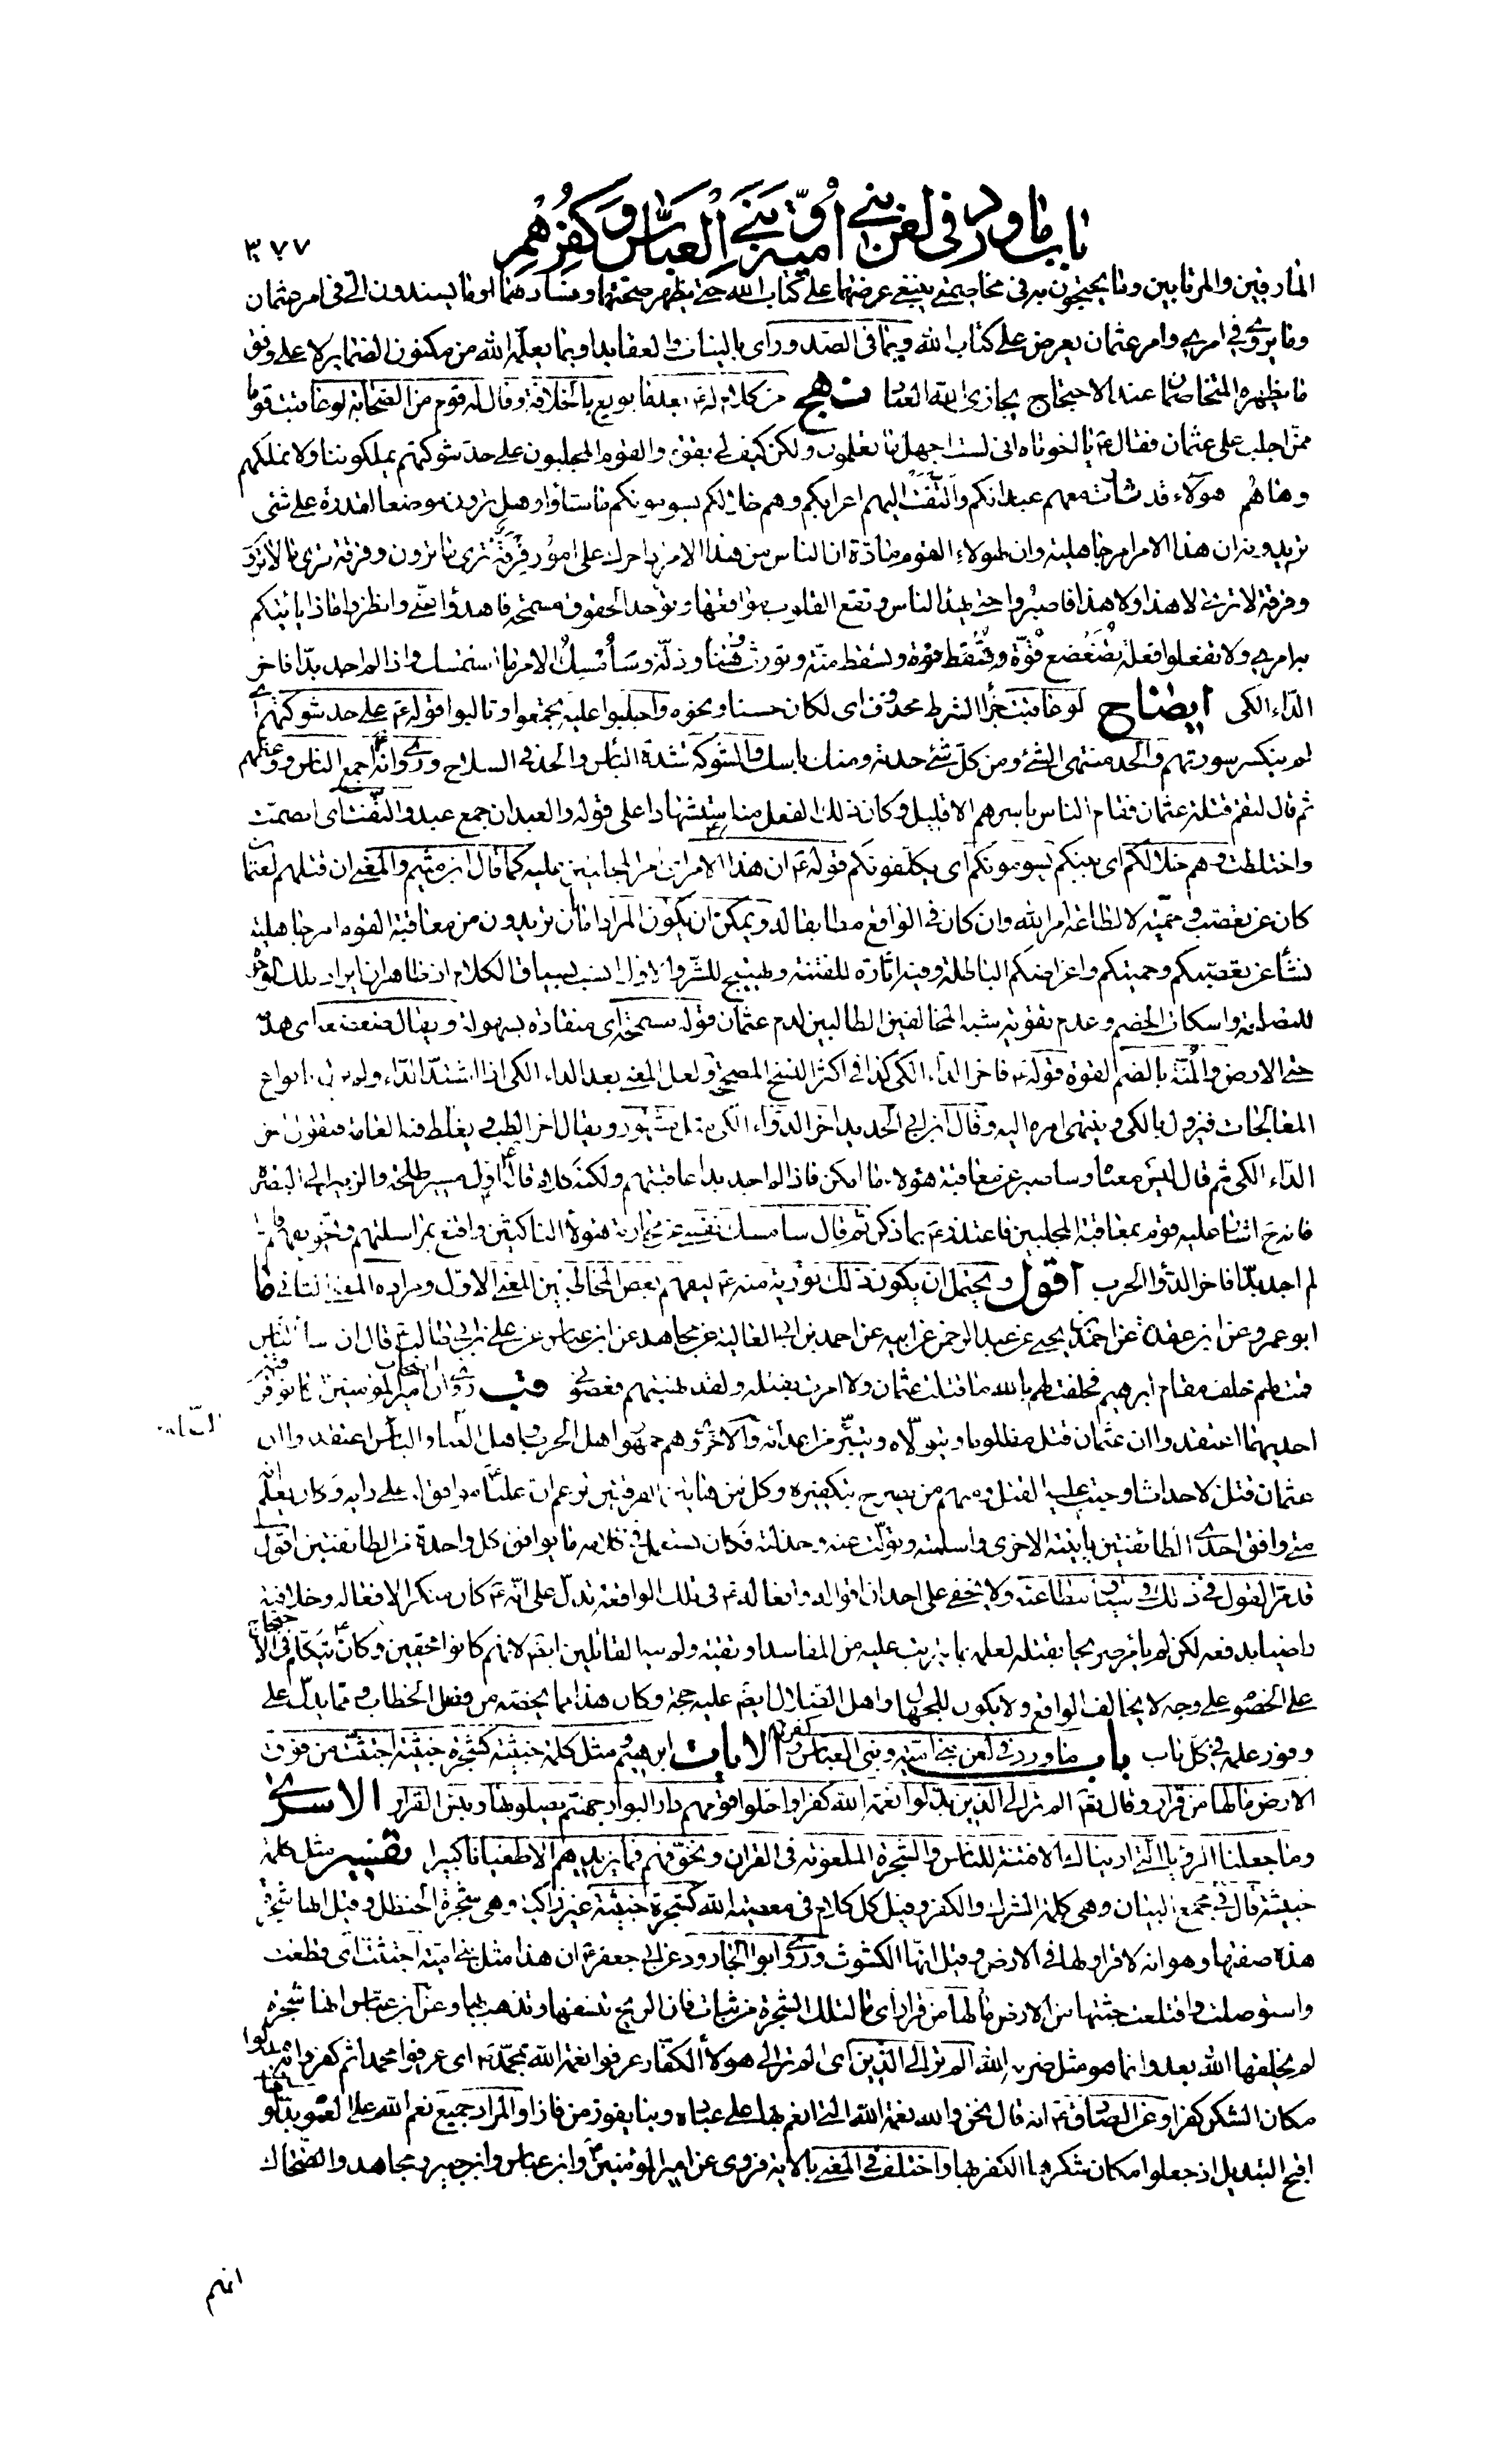 باب ما ورد في لعن بني أمية وبني العباس وكفرهم
٣٧٧
المارقين والمرتابين وما يحتجون به في مخاصمتي ينبغي عرضها على كتاب الله حتى يظهر صحتهما وفسادهما او ما يسندون الي في امر عثمان
وما يروى في امري وامر عثمان يعرض على كتاب الله وبما في الصدور اي بالنيات والعقايد او بما يعلمه الله من مكنون الضماير لا على وفق
ما يظهره المتخاصمان عند الاحتجاج يجازى الله العباد نهج من كلام له ع بعد ما بويع بالخلافة وقال له قوم من الصحابة لو عاقبت قوما
ممن اجلب على عثمان فقال ع يا اخوتاه اني لست اجهل ما تعلمون ولكن كيف لي بقوة والقوم المجلبون على حد شوكتهم يملكوننا ولا نملكهم
وها هم هؤلاء قد ثارت معهم عبدانكم والتفت اليهم اعرابكم وهم خلالكم يسومونكم ما شاؤا وهل ترون موضعا لقدرة على شئ
تريدونه ان هذا الامر امر جاهلية وان لهؤلاء القوم مادة ان الناس من هذا الامر اذا حرك على امور فرقة ترى ما ترون وفرقة ترى ما لا ترون
وفرقة لا ترى لا هذا ولا هذا فاصبروا حتى يهدأ الناس وتقع القلوب مواقعها وتؤخذ الحقوق مسمحة فاهدؤا عني وانظروا ماذا ياتيكم
به امري ولا تفعلوا فعلة تضعضع قوة وتسقط منة وتورث وهنا وذلة وسأمسك الامر ما استمسك واذا لم اجد بدا فاخر
الداء الكي ايضاح لو عاقبت جزاء الشرط محذوف اي لكان حسنا ونحوه واجلبوا عليه تجمعوا وتالبوا قوله ع على حد شوكتهم اي
لم ينكسر سورتهم والحد منتهى الشئ ومن كل شئ حدته ومنك باسك والشوكة شدة الباس والحد في السلاح وروي انه ع اجمع الناس ووعظهم
ثم قال لتقم قتلة عثمان فقام الناس باسرهم الا قليل وكان ذلك الفعل منه استشهادا على قوله والعبدان جمع عبد والتفت اي انضمت
واختلطت وهم خلالكم اي بينكم يسومونكم اي يكلفونكم قوله ع ان هذا الامر اي امر المجلبين عليه كما قال ابن ميثم والمعنى ان قتلهم لعثمان
كان عن تعصب وحمية لا لطاعة امر الله وان كان في الواقع مطابقا له ويمكن ان يكون المراد ان ما تريدون من معاقبة القوم امر جاهلية
نشأ عن تعصبكم وحميتكم واغراضكم الباطلة وفيه اثارة للفتنة وتهييج للشر والاول انسب بسياق الكلام اذ ظاهر ان ايراد تلك الوجوه
للمصلحة واسكات الخصم وعدم تقوية شبه المخالفين الطالبين لدم عثمان قوله مسمحة اي منقادة بسهولة ويقال ضعضعه اي هدمه
حتى الارض والمنة بالضم القوة قوله ع فاخر الداء الكي كذا في اكثر النسخ المصححة ولعل المعنى بعد الداء الكي اذا اشتد الداء ولم يزل بانواع
المعالجات فيزول بالكي وينتهي امره اليه وقال ابن ابي الحديد آخر الدواء الكي مثل مشهور ويقال آخر الطب ويغلط فيه العامة فتقول آخر
الداء الكي ثم قال ليس معناه وساصبر عن معاقبة هؤلاء ما امكن فاذا لم اجد بدا عاقبتهم ولكنه كلام قاله ع اول مسير طلحة والزبير الى البصرة
فانه ح اشار عليه قوم بمعاقبة المجلبين فاعتذر ع بما ذكر ثم قال سامسك نفسي عن محاربة هؤلاء الناكثين واقنع بمراسلتهم وتخويفهم فاذا
لم اجد بدا فاخر الدواء الحرب اقول ويحتمل ان يكون ذلك تورية منه ع ليفهم بعض المخاطبين المعنى الاول ومراده المعنى الثاني ما
ابو عمرو عن ابن عقدة عن احمد بن يحيى عن عبد الرحمن عن ابيه عن احمد بن ابي العالية عن مجاهد عن ابن عباس عن علي بن ابي طالب ع قال ان شاء الناس
قمت لهم خلف مقام ابرهيم فحلفت لهم بالله ما قتلت عثمان ولا امرت بقتله ولقد نهيتهم فعصوني قب روي ان اصحاب امير المؤمنين ع كانوا فرقتين
احديهما اعتقدوا ان عثمان قتل مظلوما وتتولاه وتتبرء من اعدائه والاخرى وهم جمهور اهل الحرب واهل الغناء والباس اعتقدوا ان
عثمان قتل لاحداث اوجبت عليه القتل ومنهم من يصرح بتكفيره وكل من هاتين الفرقتين تزعم ان عليا ع موافق لها على رايه وكان يعلم انه
متى وافق احدى الطائفتين باينته الاخرى واسلمته وتولت عنه وخذلته فكان يستعمل في كلامه ما يوافق كل واحدة من الطائفتين اقول
قد مر القول في ذلك وسياتي ولا يخفى على احد ان اقواله وافعاله ع في تلك الواقعة تدل على انه ع كان منكرا لافعاله وخلافته
راضيا بدفعه لكن لم يأمر صريحا بقتله لعلمه بما يترتب عليه من المفاسد او تقية ولم ينه القاتلين ايضا لانهم كانوا محقين وكان ع يتكلم في الاحتجاج
على الخصوم على وجه لا يخالف الواقع ولا يكون للجهال واهل الضلال ايضا عليه حجة وكان هذا مما يخصه من فصل الخطاب ومما يدل على
وفور علمه في كل باب باب ما ورد في لعن بني امية وبني العباس وكفرهم الايات ابرهيم ومثل كلمة خبيثة كشجرة خبيثة اجتثت من فوق
الارض ما لها من قرار وقال تعالى الم تر الى الذين بدلوا نعمة الله كفرا واحلوا قومهم دار البوار جهنم يصلونها وبئس القرار الاسرى
وما جعلنا الرؤيا التي اريناك الا فتنة للناس والشجرة الملعونة في القران ونخوفهم فما يزيدهم الا طغيانا كبيرا تفسير مثل كلمة
خبيثة قال في مجمع البيان وهي كلمة الشرك والكفر وقيل كل كلام في معصية الله كشجرة خبيثة غير زاكية وهي شجرة الحنظل وقيل انها شجرة
هذه صفتها وهو انه لا قرار لها في الارض وقيل انها الكشوث وروى ابو الجارود عن ابي جعفر ع ان هذا مثل بني امية اجتثت اي قطعت
واستوصلت واقتلعت جثتها من الارض ما لها من قرار اي ما لتلك الشجرة من ثبات فان الريح تنسفها وتذهب بها وعن ابن عباس انها شجرة
لم يخلقها الله بعد وانما هو مثل ضربه الله الم تر الى الذين اي الم تر الى هؤلاء الكفار عرفوا نعمة الله بمحمد ص اي عرفوا محمدا ثم كفروا به فبدلوا
مكان الشكر كفرا وعن الصادق ع انه قال نحن والله نعمة الله التي انعم بها على عباده وبنا يفوز من فاز او المراد جميع نعم الله على العموم بدلوها
اقبح التبديل اذ جعلوا مكان شكرها الكفر بها واختلف في المعنى بالاية فروي عن امير المؤمنين ع وابن عباس وابن جبير ومجاهد والضحاك
انهم